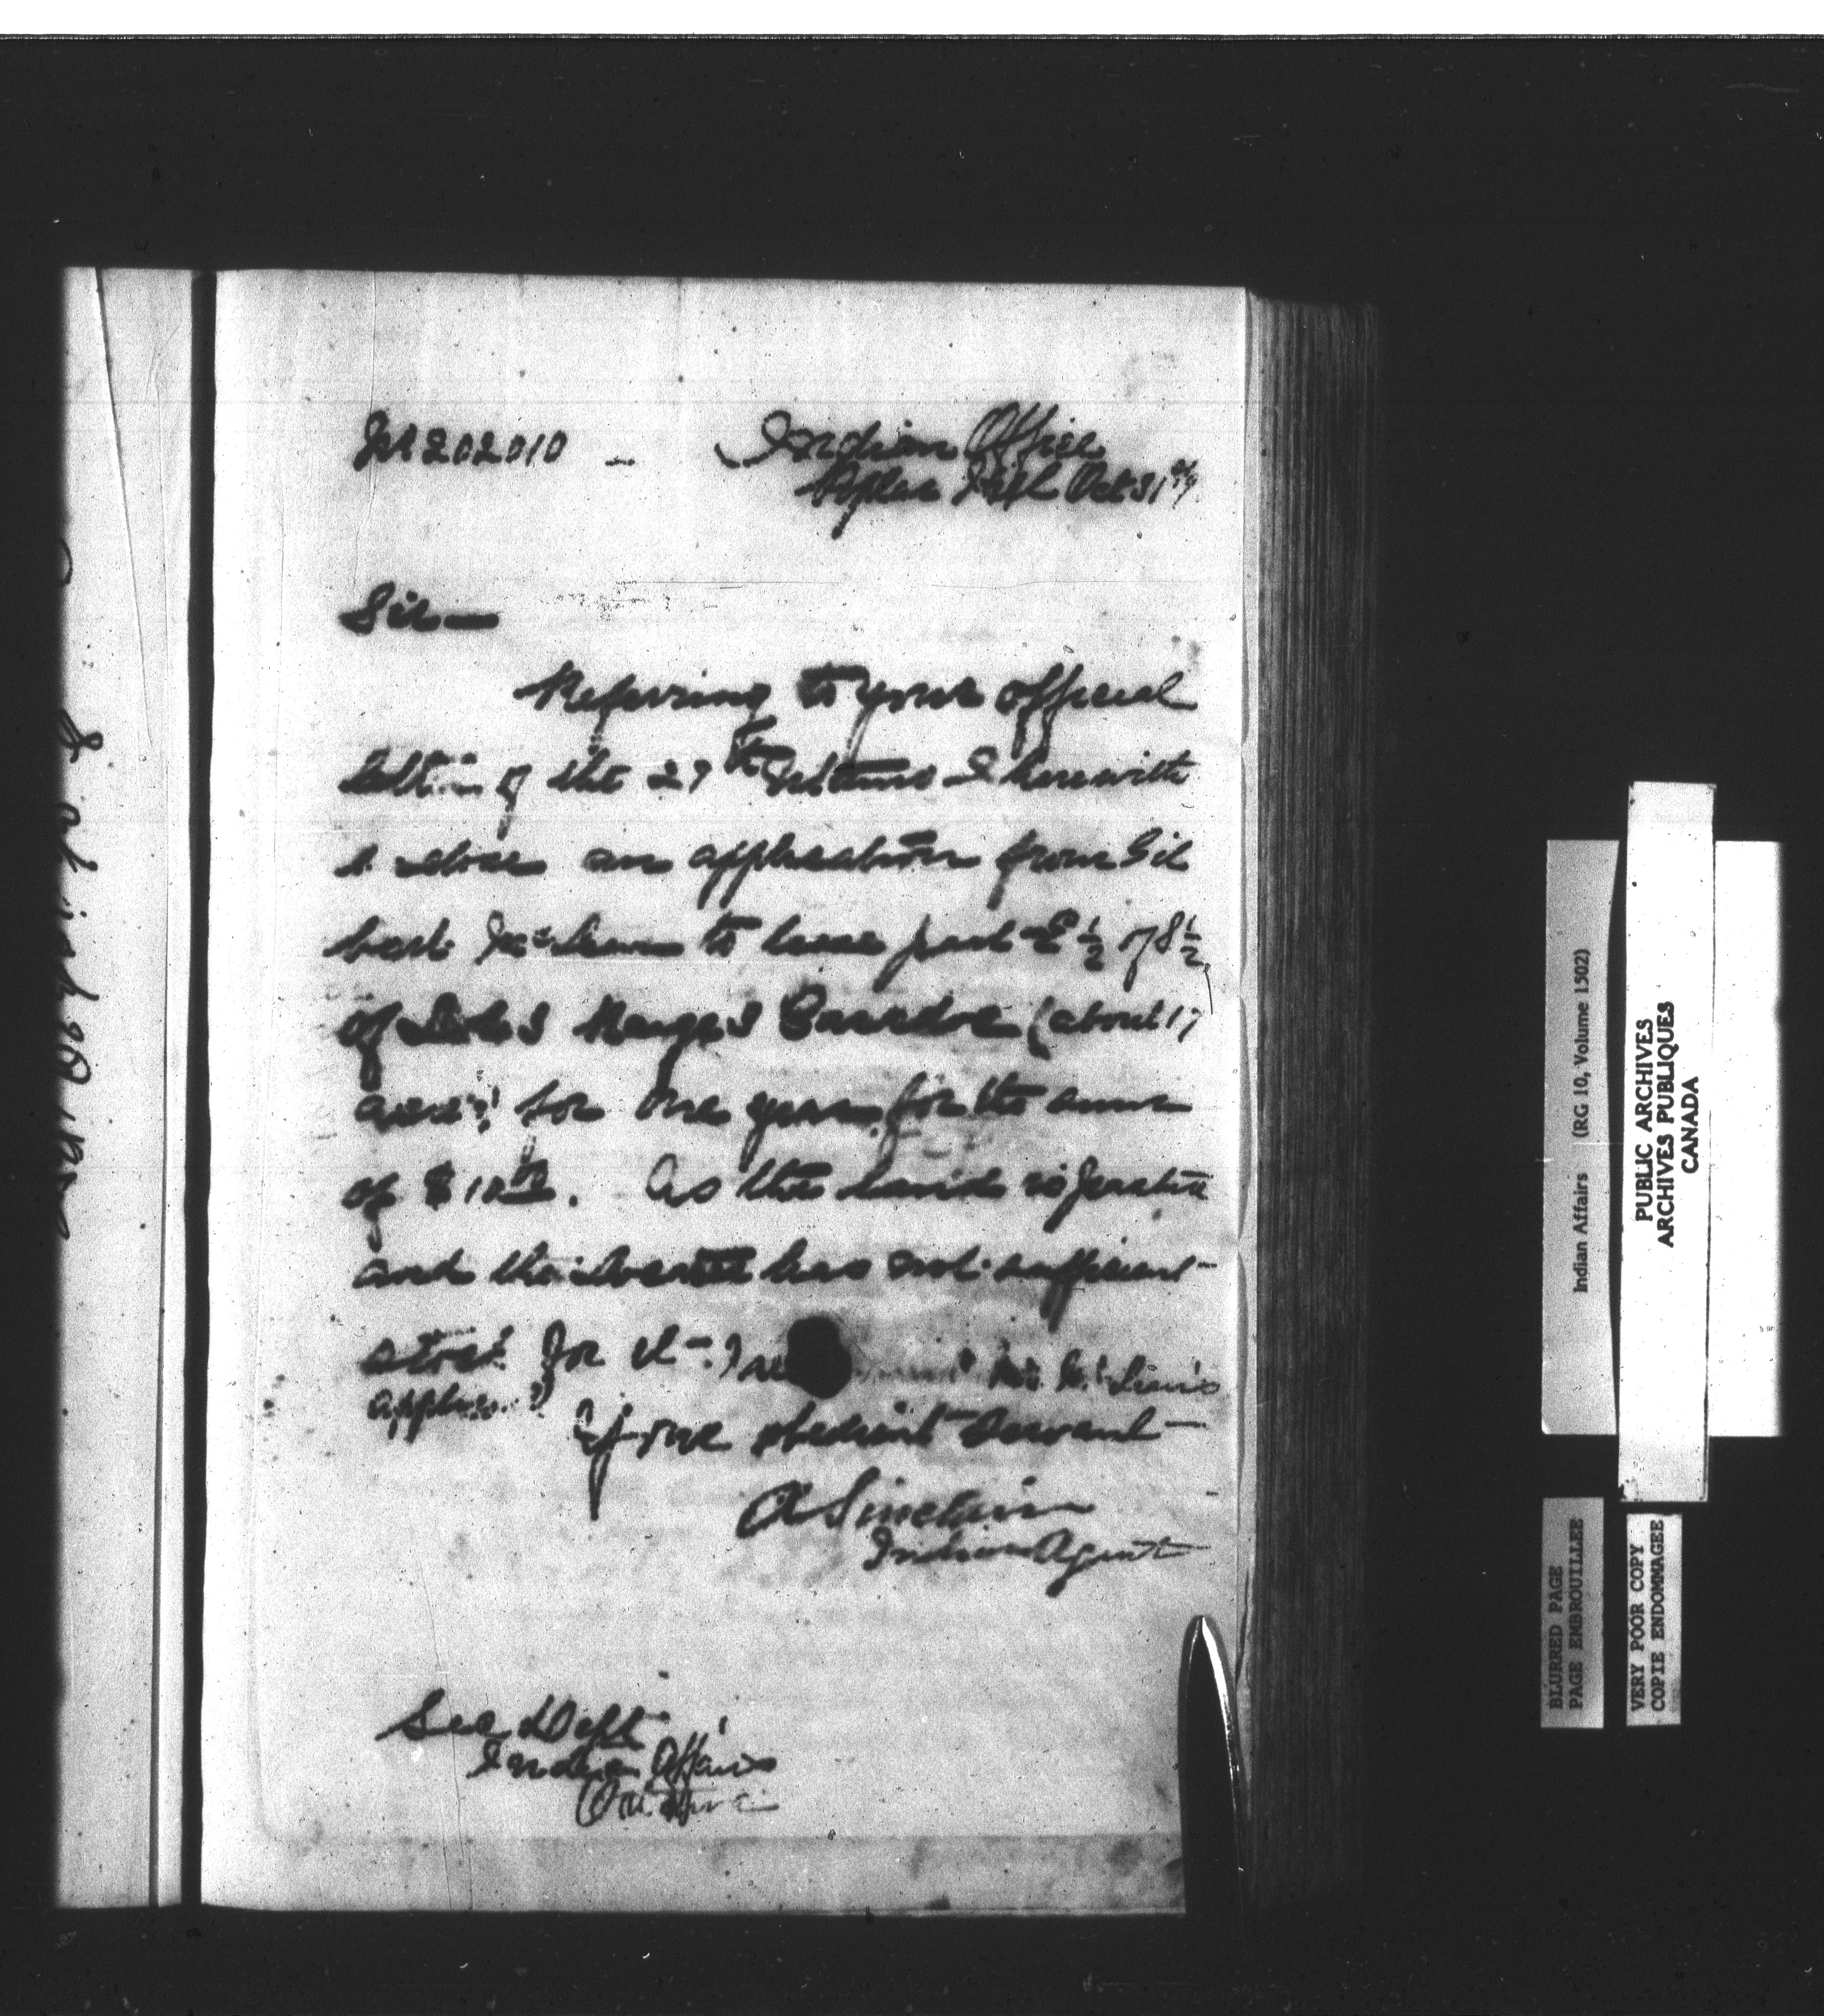 202010 - Indian Office
Poplar Hill Oct 31st
Sir —
Referring to your official
letter of the 27th I herewith
enclose an application from Gil
bert McLean to lease part E ½ of S ½
of Lot 8 Range 3 Caradoc (about 17
acres) for one year for the sum
of $10.00. As the land is pasture
and the has not sufficient
stock for it
Mr. McLean's
Your obedient Servant
A Sinclair
Indian Agent
Sec Dept
Indian Affairs
Ottawa
Indian Affairs (RG 10, Volume 1502)
PUBLIC ARCHIVES
ARCHIVES PUBLIQUES
CANADA
BLURRED PAGE
PAGE EMBROUILLEE
VERY POOR COPY
COPIE ENDOMMAGEE